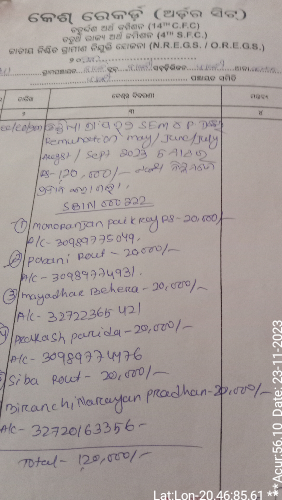 କେଶ୍ ରେକର୍ଡ଼ (ଅର୍ଡ଼ର ସିଟ୍)
ଚତୁର୍ଦ୍ଦଶ ଅର୍ଥ କମିଶନ (14TH C.F.C)
ଚତୁର୍ଥ ରାଜ୍ୟ ଅର୍ଥ କମିଶନ (4TH S.F.C.)
ଜାତୀୟ ନିଶ୍ଚିତ ଗ୍ରାମୀଣ ନିଯୁକ୍ତି ଯୋଜନା (N.R.E.G.S. / O.R.E.G.S.)
ପଞ୍ଚାୟତ ସମିତି
ତାରିଖ
୩
୪
SEM & P
Remuneration may/June/July
August/Sept 2023
Rs-120,000/-
SBIN 000322
① manoranjan patkray Rs-20,000/-
A/c- 30989775049.
② Rout - 20,000/-
A/c- 30989774931.
③ mayadhar Behera - 20,000/-
A/c- 32722365421
Prakash parida - 20,000/-
A/c- 30989774476
Siba Rout - 20,000/-
Biranchi Narayan pradhan-20,000/-
A/c- 32720163356-
Total- 120,000/-
Lat:Lon-20.46:85.61
**Acur:56.10 Date: 23-11-2023